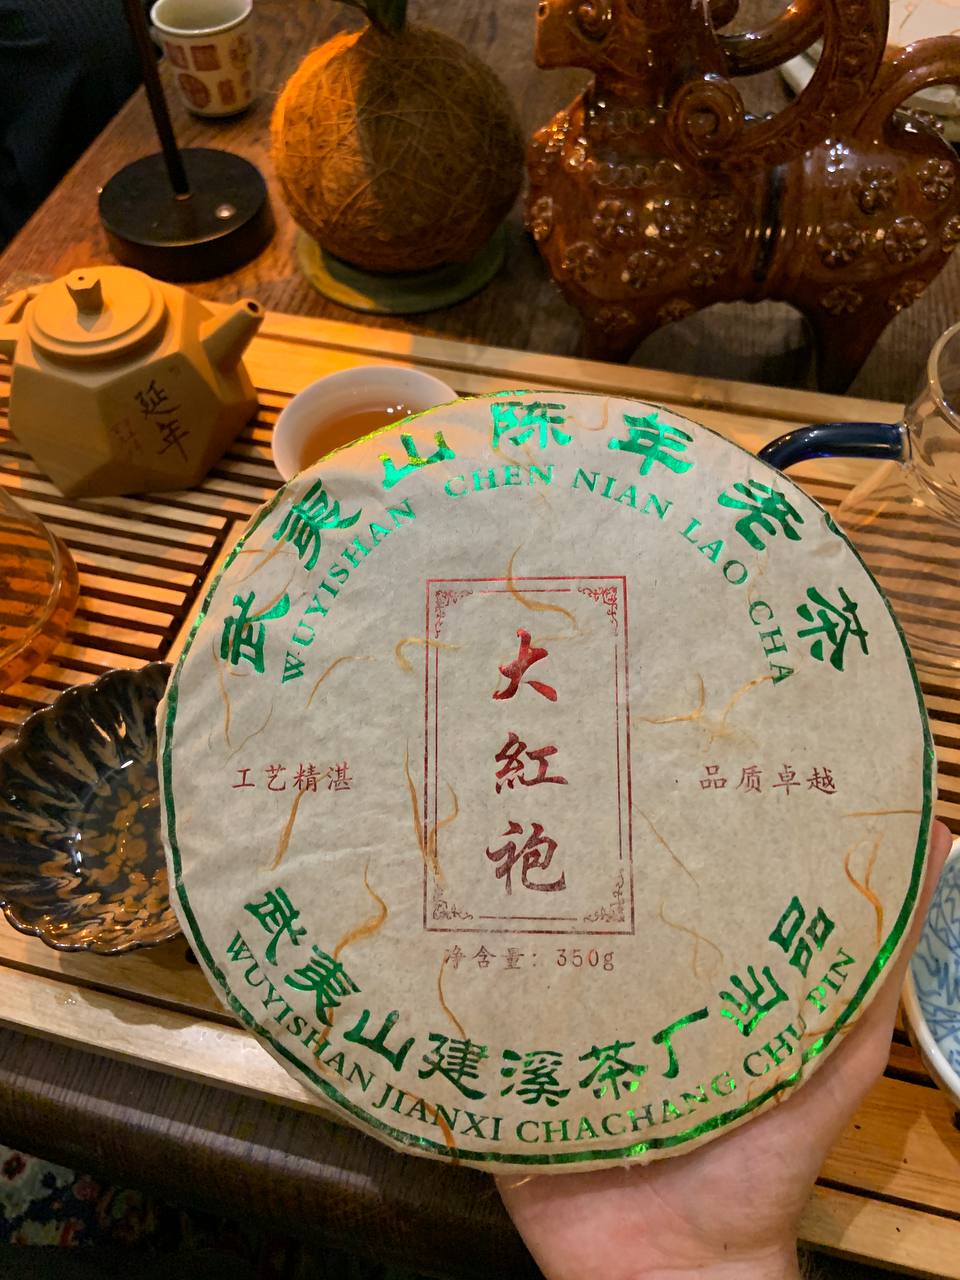 武夷山陈年老茶
WUYISHAN CHEN NIAN LAO CHA
大
紅
袍
工艺精湛
品质卓越
净含量: 350g
武夷山建溪茶厂出品
WUYISHAN JIANXI CHACHANG CHU PIN
延
年